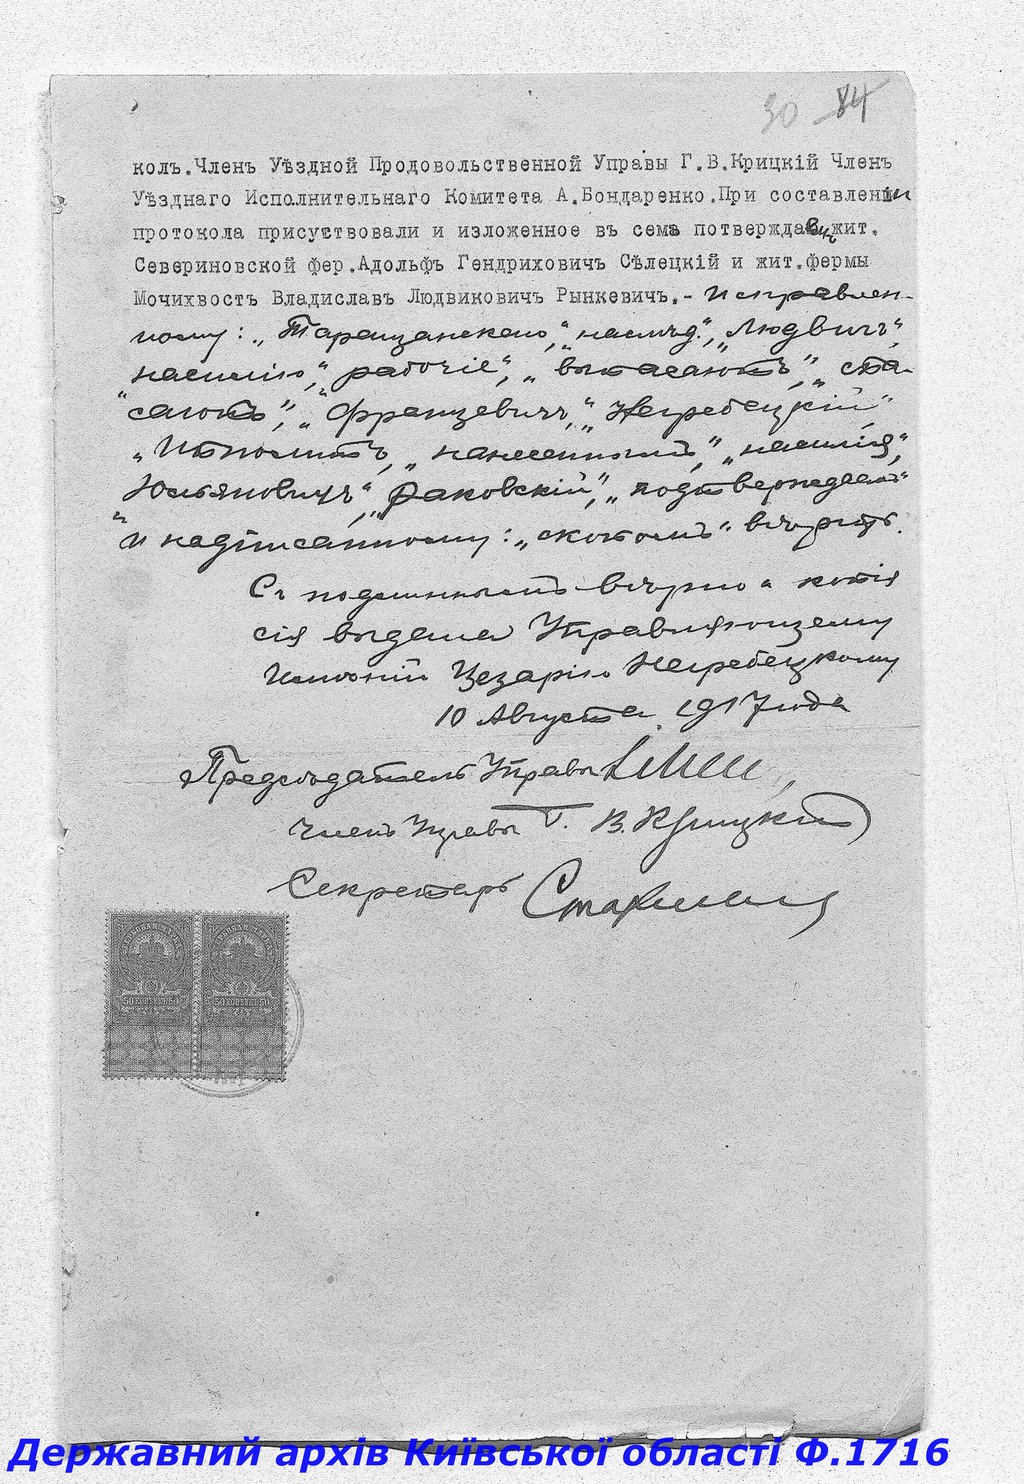 30 84
колъ.Членъ Уѣздной Продовольственной Управы Г.В.Крицкій Членъ
Уѣзднаго Исполнительнаго Комитета А.Бондаренко.При составленіи
протокола присутствовали и изложенное въ семъ потверждаютъ жит.
Севериновской фер.Адольфъ Гендриховичъ Сѣлецкій и жит.фермы
Мочихвостъ Владиславъ Людвиковичъ Рынкевичъ.- Исправлен-
ному: „Таращанскаго", „Людвигъ",
„насилію", „рабочіе", „выпасаютъ", „спа-
саютъ", „Францевичъ", „Негребецкій"
„Ипполитъ", „нанесеннымъ", „насилія",
Юльяновичъ", „Раковскій", „подтверждаютъ"
и надписанному: „скотомъ" вѣрить.
Съ подлиннымъ вѣрно и копія
сія выдана Управляющему
Имѣній Цезарію Негребецкому
10 Августа 1917 года
Предсѣдатель Управы
Членъ Управы Г. В. Крицкій
Секретарь
50 КОПѢЕКЪ 50 50 КОПѢЕКЪ 50
Державний архів Київської області Ф.1716